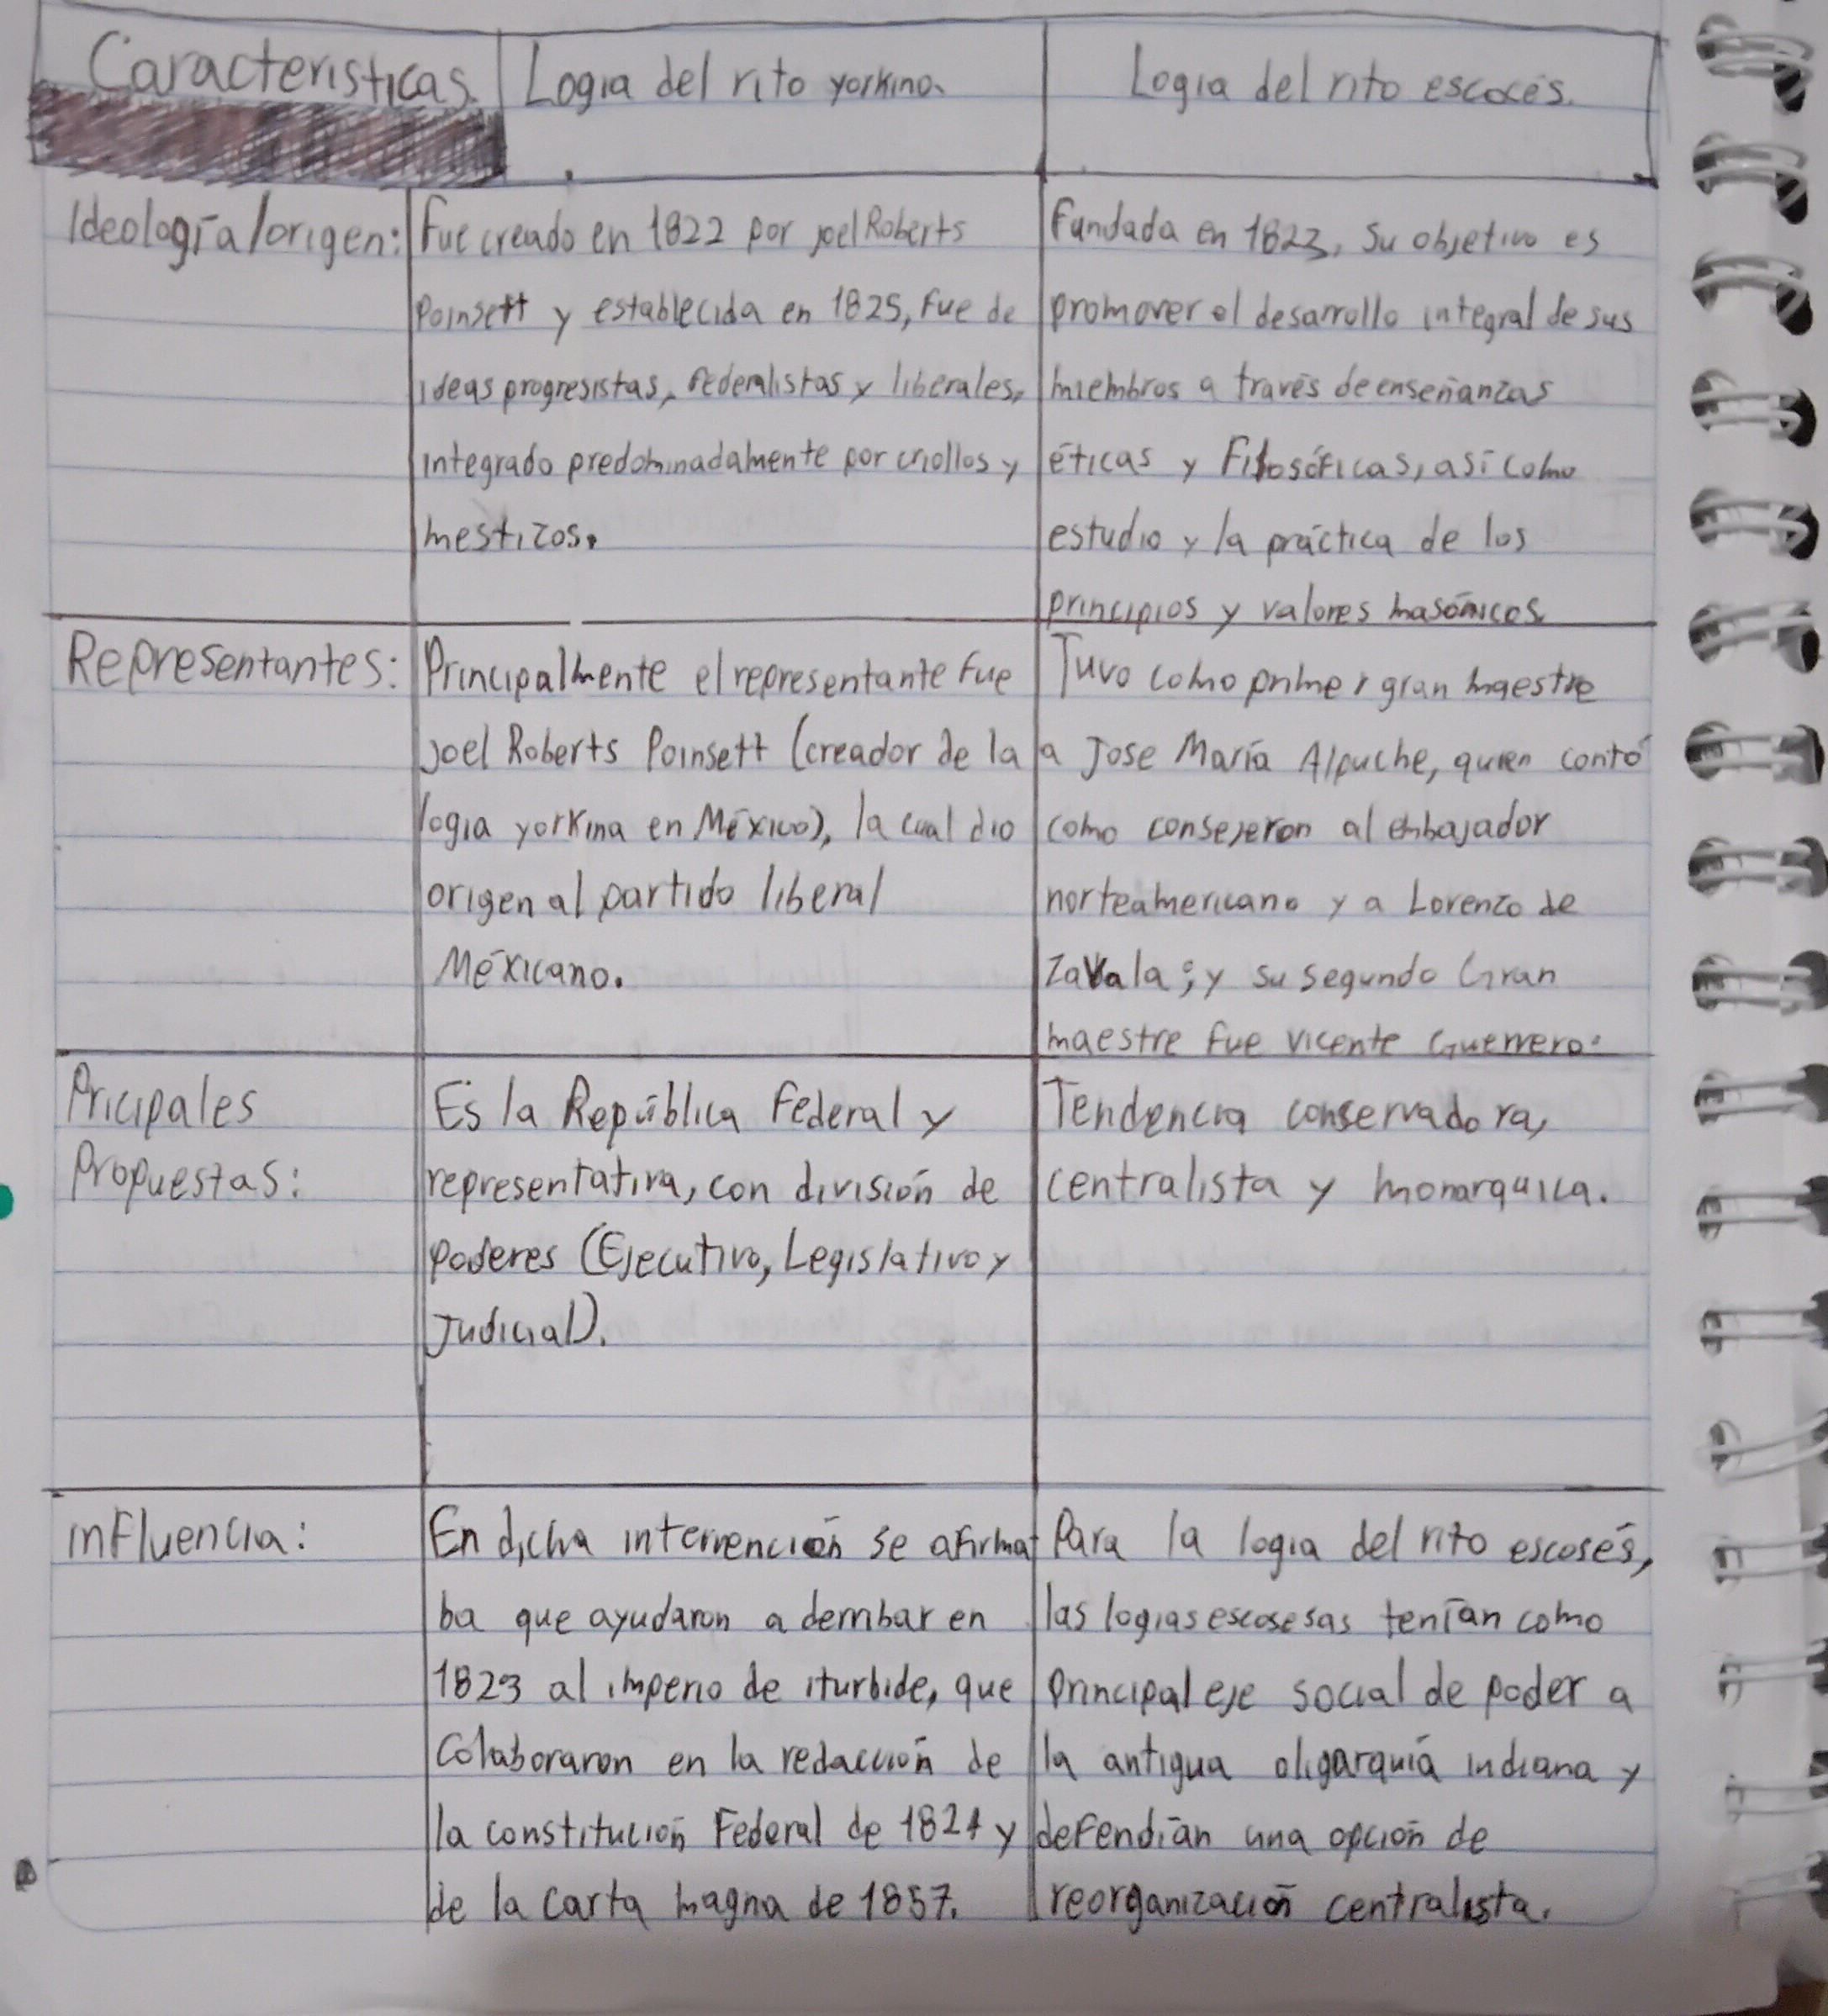 Caracteristicas.
Logia del rito yorkino.
Logia del rito escocés.
Ideología/origen:
Fue creado en 1822 por joel Roberts
Poinsett y establecida en 1825, fue de
ideas progresistas, federalistas y liberales,
integrado predominadamente por criollos y
mestizos.
Fundada en 1823, su objetivo es
promover el desarrollo integral de sus
miembros a través de enseñanzas
éticas y Filosóficas, así como
estudio y la práctica de los
principios y valores masónicos.
Representantes:
Principalmente el representante fue
Joel Roberts Poinsett (creador de la
logia yorkina en México), la cual dio
origen al partido liberal
Méxicano.
Tuvo como primer gran maestre
a Jose María Alpuche, quien contó
como conseyeron al embajador
norteamericano y a Lorenzo de
Zavala; y su segundo Gran
maestre fue Vicente Guerrero.
Pricipales
Propuestas:
Es la República Federal y
representativa, con división de
poderes (Ejecutivo, Legislativo y
Judicial).
Tendencia conservadora,
centralista y monarquica.
influencia:
En dicha intervención se afirma
ba que ayudaron a derribar en
1823 al imperio de iturbide, que
colaboraron en la redacción de
la constitución Federal de 1824 y
de la carta magna de 1857.
Para la logia del rito escosés,
las logias escosesas tenían como
principal eje social de poder a
la antigua oligarquía indiana y
defendían una opción de
reorganización centralista.